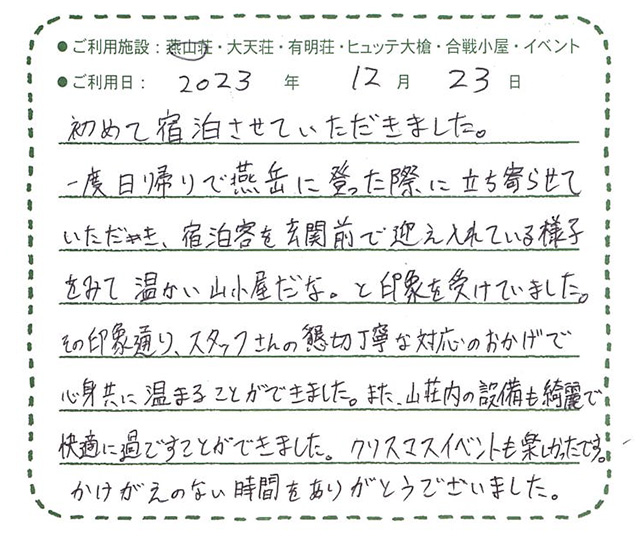 ● ご利用施設：燕山荘・大天荘・有明荘・ヒュッテ大槍・合戦小屋・イベント
● ご利用日： 2023 年 12 月 23 日
初めて宿泊させていただきました。
一度日帰りで燕岳に登った際に立ち寄らせて
いただき、宿泊客を玄関前で迎え入れている様子
をみて温かい山小屋だな。と印象を受けていました。
その印象通り、スタッフさんの懇切丁寧な対応のおかげで
心身共に温まることができました。また、山荘内の設備も綺麗で
快適に過ごすことができました。クリスマスイベントも楽しかったです。
かけがえのない時間をありがとうございました。